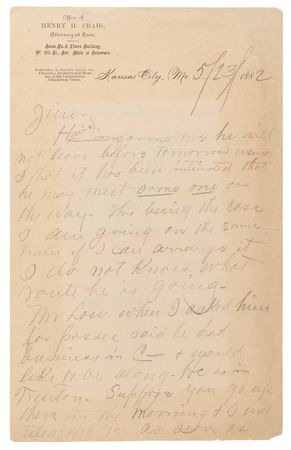 Office of
HENRY H. CRAIG,
Attorney at Law,
Room No. 6, Times Building,
W. 5th St., Bet. Main & Delaware.
Kansas City, Mo. 5/23/1882
Jim--
me he will
not leave before tomorrow
& that it has been intimated that
he may meet some one on
the way-- This being the case
I am going on the same
train if I can arrange it
I do not know, what
route he is going--
Mr how. when I asked him
for passes said he had
business in C-- & would
like to be along-- He is in
Trenton. Suppose you go up
there in the morning & I will
telegraph you as soon as